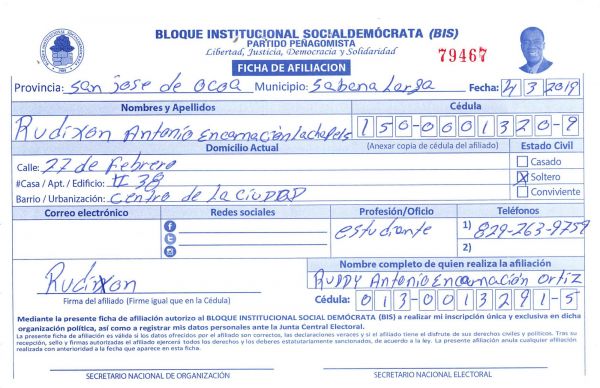 BLOQUE INSTITUCIONAL SOCIALDEMÓCRATA (BIS)
PARTIDO PEÑAGOMISTA
Libertad, Justicia, Democracia y Solidaridad
79467
FICHA DE AFILIACION
Provincia: San jose de ocoa Municipio: Sabana Larga Fecha: 4 3 2019
Nombres y Apellidos Cédula
Rudixon Antonio Encarnación Lachapels 150-0001320-9
Domicilio Actual (Anexar copia de cédula del afiliado) Estado Civil
Calle: 27 de Febrero Casado
#Casa / Apt. / Edificio: # 38 X Soltero
Barrio / Urbanización: Centro de La Ciudad Conviviente
Correo electrónico Redes sociales Profesión/Oficio Teléfonos
estudiante 1) 829-263-9759
2)
Nombre completo de quien realiza la afiliación
Rudixon Ruddy Antonio Encarnación Ortiz
Firma del afiliado (Firme igual que en la Cédula) Cédula: 013-0013291-5
Mediante la presente ficha de afiliación autorizo al BLOQUE INSTITUCIONAL SOCIAL DEMÓCRATA (BIS) a realizar mi inscripción única y exclusiva en dicha
organización política, así como a registrar mis datos personales ante la Junta Central Electoral.
La presente ficha de afiliación es válida si los datos ofrecidos por el afiliado son correctos, las declaraciones veraces y si el afiliado tiene el disfrute de sus derechos civiles y políticos. Tras su
recepción, sello y firmas autorizadas el afiliado ejercerá todos los derechos y los deberes estatutariamente sancionados, de acuerdo a la ley. La presente afiliación anula cualquier afiliación
realizada con anterioridad a la fecha que aparece en esta ficha.
SECRETARIO NACIONAL DE ORGANIZACIÓN SECRETARIO NACIONAL ELECTORAL